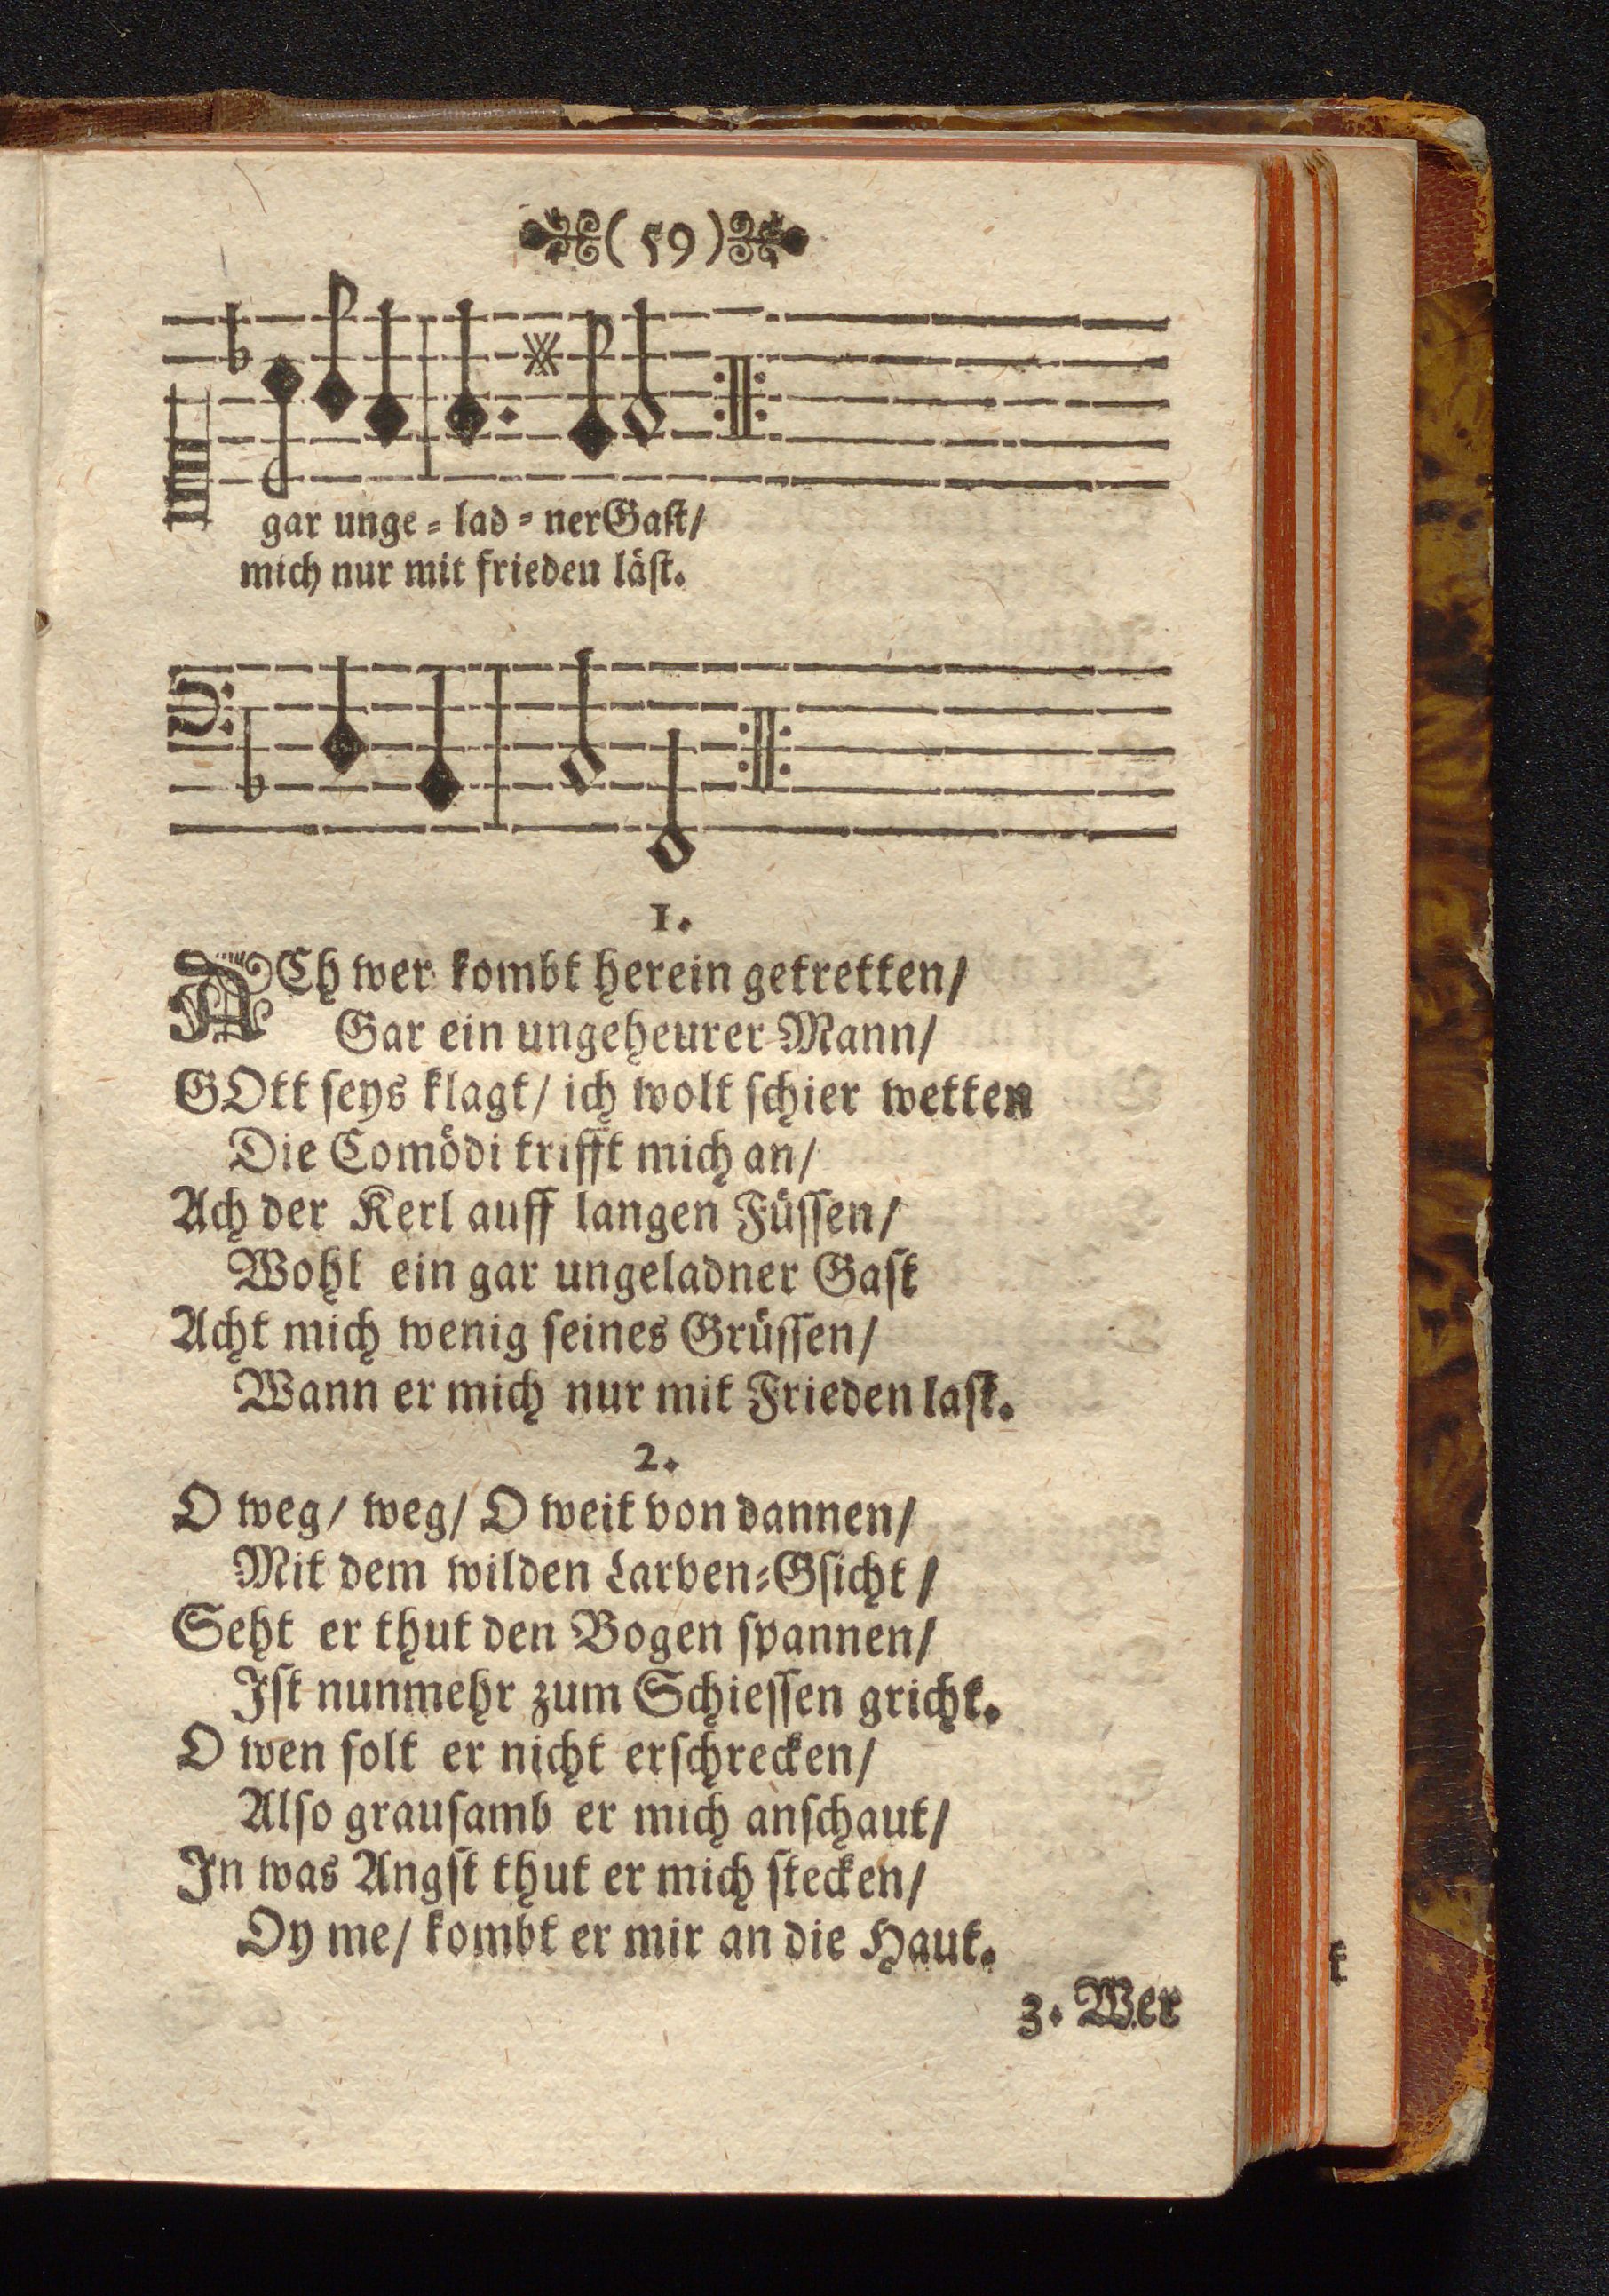 (59)
gar unge = lad = ner Gast/
mich nur mit frieden läst.
1.
ACh wer kombt herein getretten/
Gar ein ungeheurer Mann/
GOtt seys klagt/ ich wolt schier wetten
Die Comödi trifft mich an/
Ach der Kerl auff langen Füssen/
Wohl ein gar ungeladner Gast
Acht mich wenig seines Grüssen/
Wann er mich nur mit Frieden last.
2.
O weg/ weg/ O weit von dannen/
Mit dem wilden Larven=Gsicht/
Seht er thut den Bogen spannen/
Ist nunmehr zum Schiessen gricht.
O wen solt er nicht erschrecken/
Also grausamb er mich anschaut/
In was Angst thut er mich stecken/
Oy me/ kombt er mir an die Haut.
3. Wer